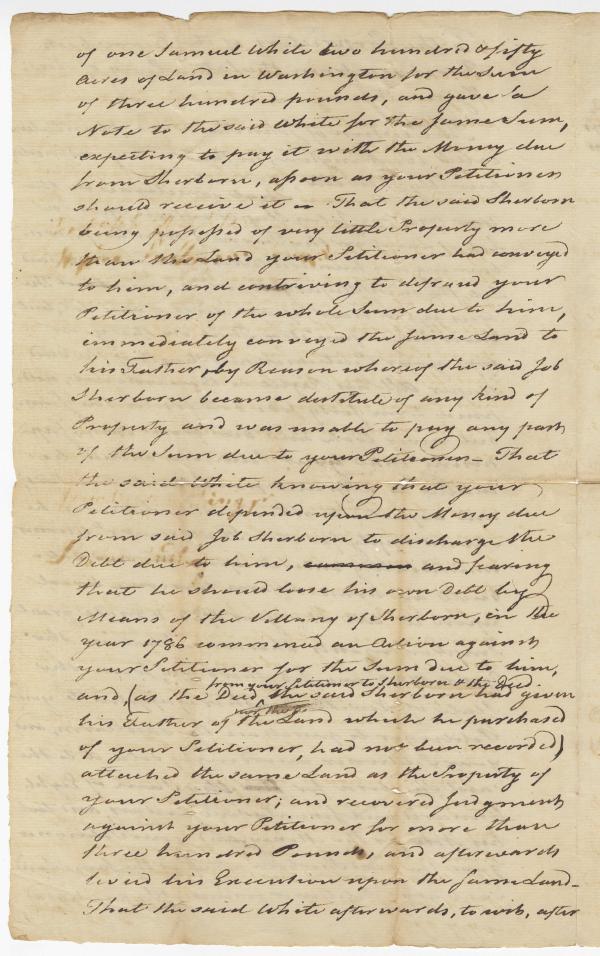 of one Samuel White two hundred & fifty
Acres of Land in Washington for the Sum
of three hundred pounds, and gave a
Note to the said White for the same Sum,
expecting to pay it with the Money due
from Sherborn, assoon as your Petitioner
should receive it — That the said Sherborn
being possessed of very little Property more
than the Land your Petitioner had conveyed
to him, and contriving to defraud your
Petitioner of the whole Sum due to him,
immediately conveyed the same Land to
his Father, by Reason whereof the said Job
Sherborn became destitute of any kind of
Property and was unable to pay any part
of the Sum due to your Petitioner — That
the said White knowing that your
Petitioner depended upon the Money due
from said Job Sherborn to discharge the
Debt due to him, and fearing
that he should loose his own Debt by
Means of the Villany of Sherborn, in the
year 1786 commenced an Action against
your Petitioner for the Sum due to him,
from your Petitioner to Sherborn & the Deed
and, (as the Deed the said Sherborn had given
nor the
his Father of the Land which he purchased
of your Petitioner, had not been recorded)
attached the same Land as the Property of
your Petitioner; and recovered Judgment
against your Petitioner for more than
three hundred Pounds, and afterwards
levied his Execution upon the same Land —
That the said White afterwards, to wit, after